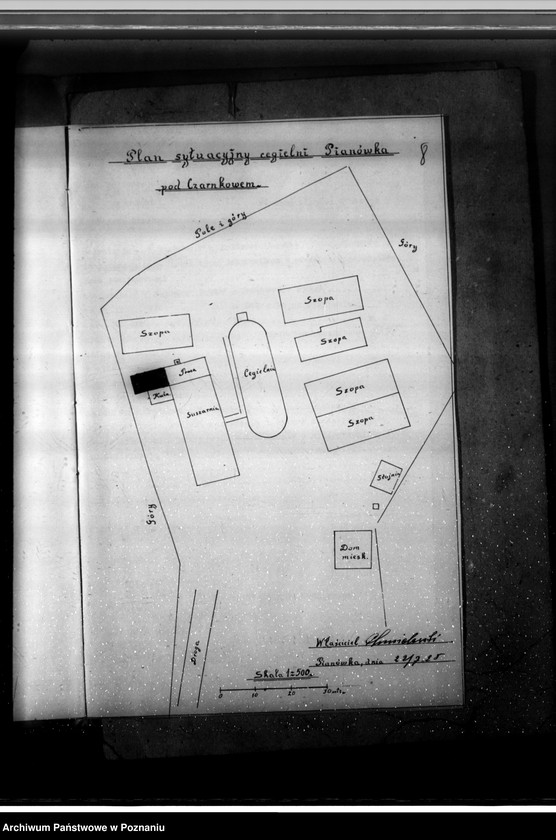 Plan sytuacyjny cegielni Pianówka
8
pod Czarnkowem.
Pole i góry
Góry
Szopa
Szopa
Szopa
Prasa
Cegielnia
Szopa
Suszarnia
Szopa
Stajnia
Góry
Dom
mieszk.
Droga
Właściciel
Pianówka, dnia 22/9.25
Skala 1=500.
0 10 20 30 mtr.
Archiwum Państwowe w Poznaniu